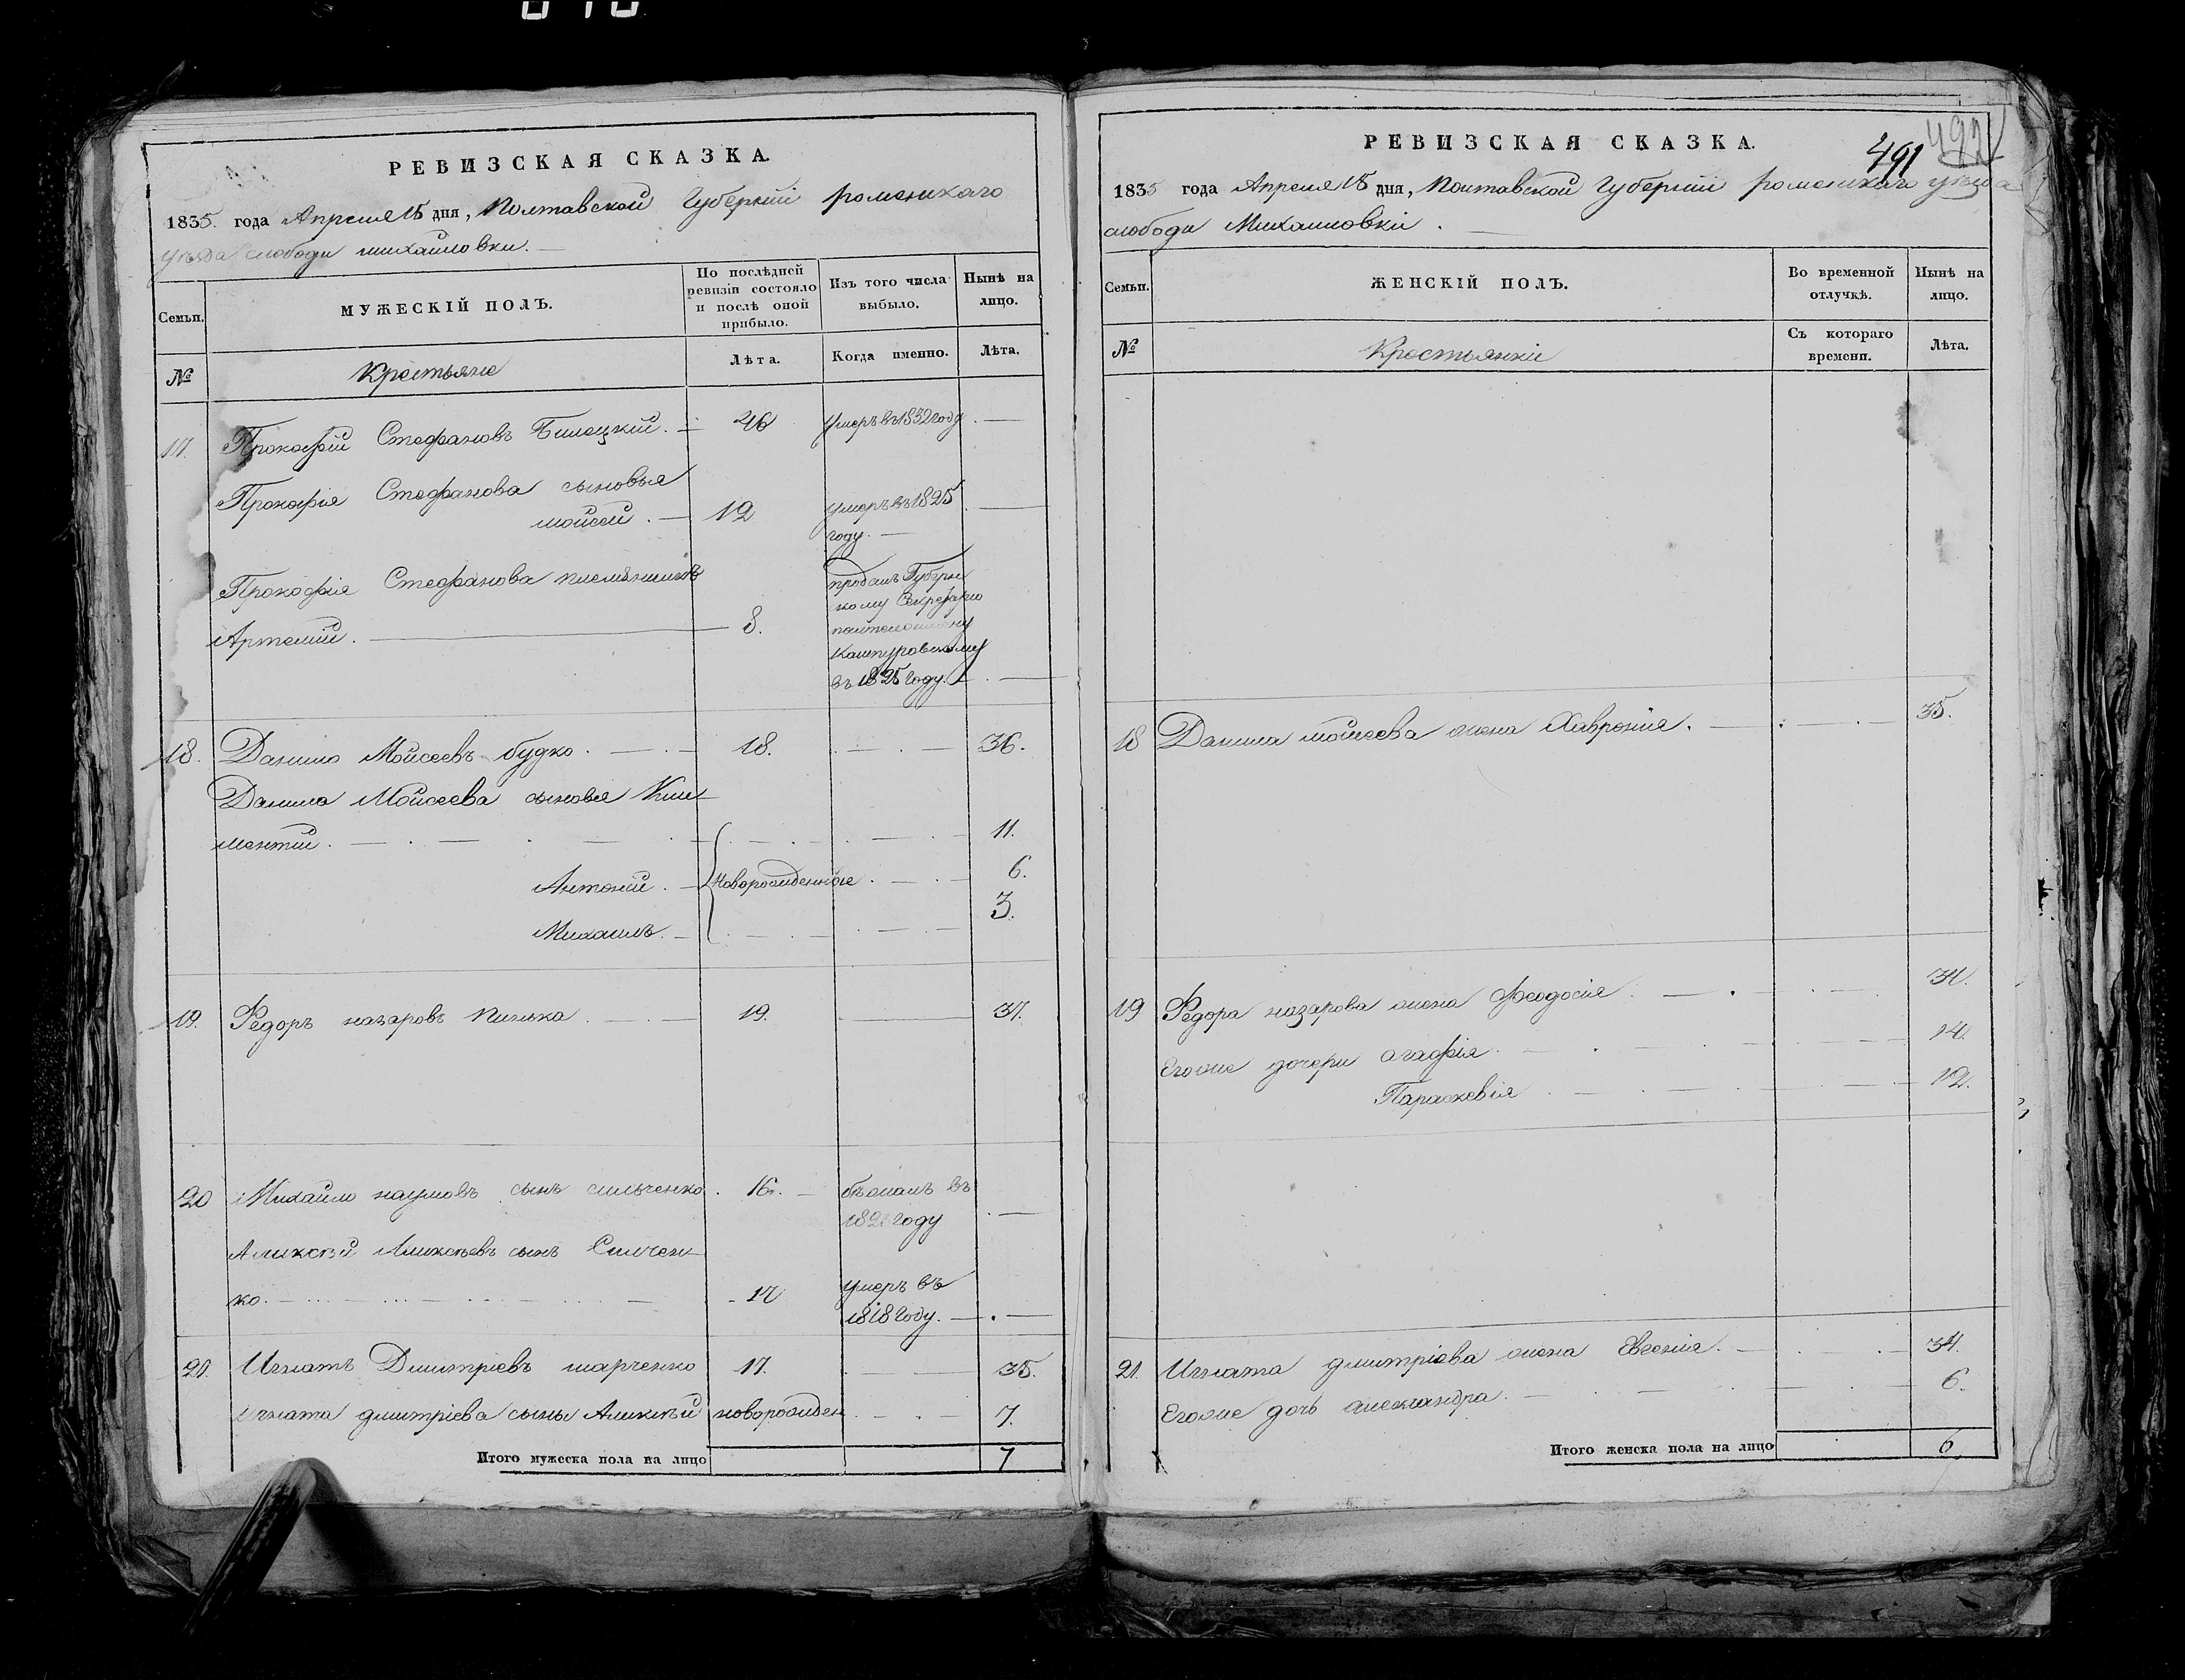 РЕВИЗСКАЯ СКАЗКА.
1835. года Апреля 15 дня, Полтавской Губерніи роменскаго
уезда слободи михайловки.
Семьи.
МУЖЕСКІЙ ПОЛЪ.
По послѣдней ревизіи состояло и послѣ оной прибыло.
Изъ того числа выбыло.
Нынѣ на лицо.
№
Крестьяне
Лѣта.
Когда именно.
Лѣта.
17. Прокофій Стефановъ Билецкій. 46 умеръ въ 1832 году
Прокофія Стефанова сыновья
мойсей. 12 умеръ въ 1825
году.
Прокофія Стефанова племянникъ
Артемій. 8.
проданъ Губернскому Секретарю
Каштуровскому
въ 1825 году.
18. Данило Мойсеевъ будко. 18. 36.
Данила Мойсеева сыновья Кли
ментій. 11.
Антоній. новорожденные 6.
Михаилъ. 3.
19. Федоръ назаровъ 19. 37.
20 Михайло наумовъ сынъ сильченко. 16. бежалъ въ
году
Аликсѣй Аликсѣевъ сынъ Сильчен
ко. 17 умеръ въ
1818 году.
21. Игнатъ Дмитріевъ марченко 17. 35.
Игната дмитріева сынъ Аликсѣй новорожден 7.
Итого мужеска пола на лицо 7
РЕВИЗСКАЯ СКАЗКА.
491
492
1835 года Апреля 15 дня, Полтавской Губерніи роменскаго уезда
слободи Михайловкі.
Семьи.
ЖЕНСКІЙ ПОЛЪ.
Во временной отлучкѣ.
Нынѣ на лицо.
№
Крестьянкіи
Съ котораго времени.
Лѣта.
18 Данила мойсеева жена Хаврония. 35.
19 Федора назарова жена Феодосія. 34.
Егоже дочери агафія. 14.
Параскевія 12.
21. Игната дмитріева жена Евгенія. 34.
Егоже дочь александра. 6.
Итого женска пола на лицо 6